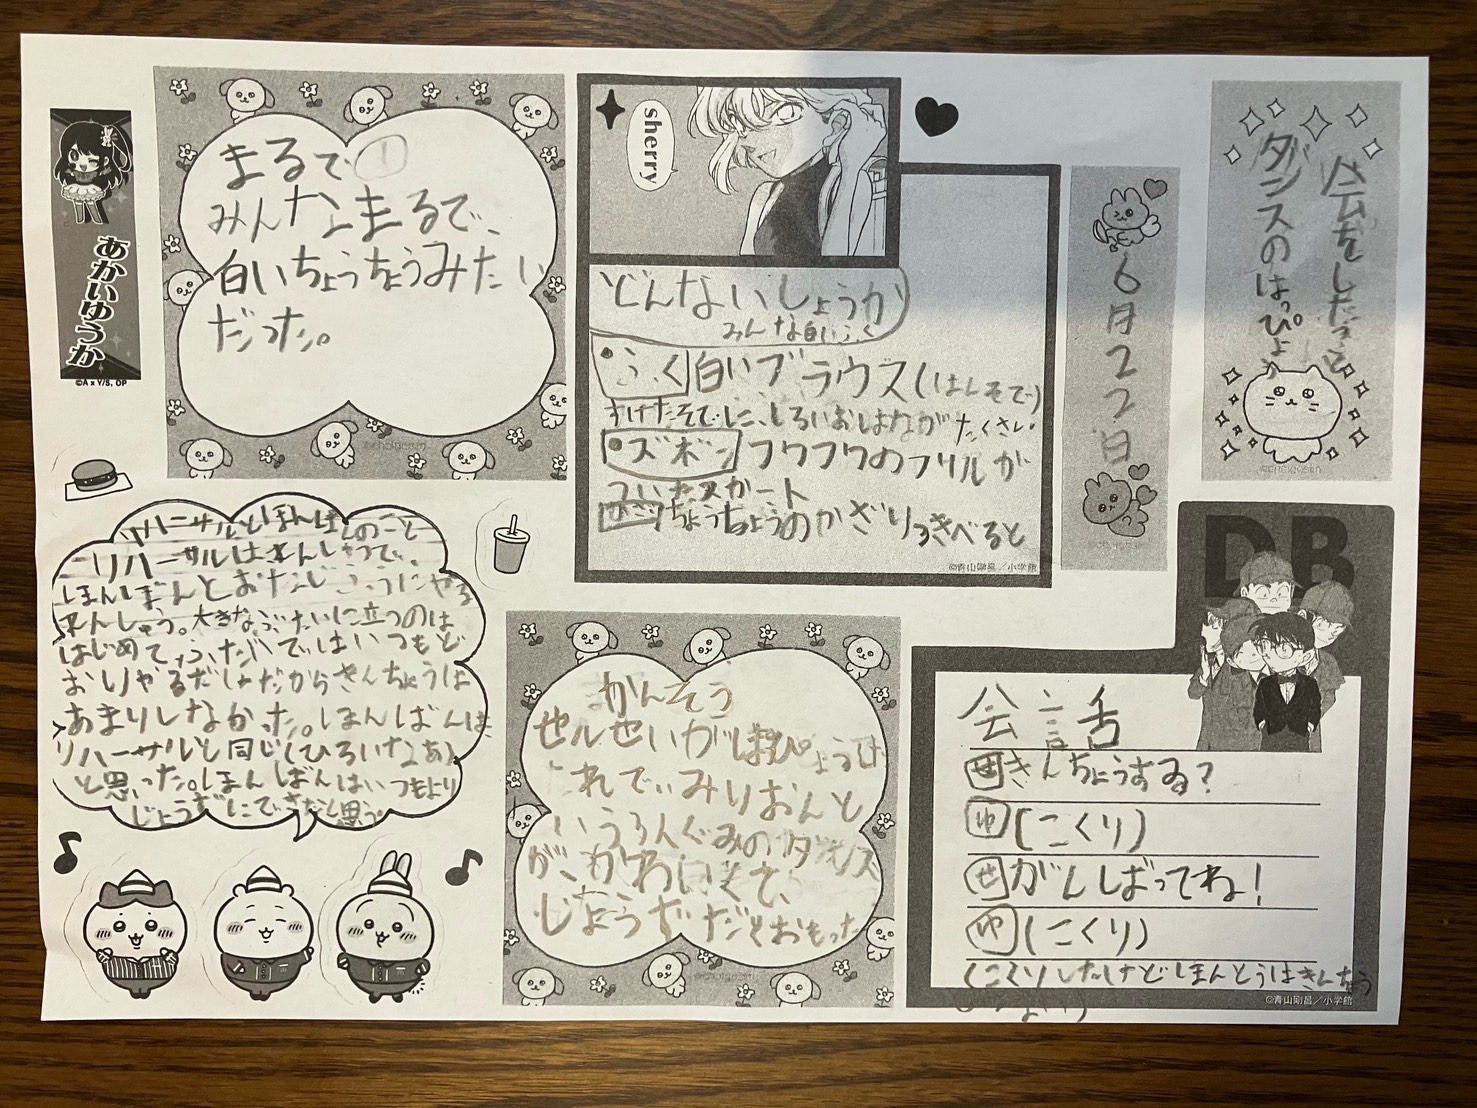 会をしたよ
ダンスのはっぴょう
6月22日
sherry
どんないしょうか
みんな白いふく
ふく 白いブラウス(はんそで)
すけたそでしこ、しろいおはながたくさん
ズボン フワフワのフリルが
ついたスカート
かざり ちょうちょうのかざり
©青山剛昌/小学館
まるで
みんなまるで、
白いちょうちょうみたい
だった。
あかいゆうか
©A x Y/S, OP
リハーサルとほんばんのこと
リハーサルはれんしゅうで、
ほんばんとおなじふうにやる
れんしゅう。大きなぶたいに立つのは
はじめて、ふだんではいつもど
おりやるだけだからきんちょうは
あまりしなかった。ほんばんは
リハーサルと同じくひろいなあ
と思った。ほんばんはいつもより
じょうずにできたと思う。
かんそう
せんせいがはっぴょうは
いうろんぐみのダンス
が、かわいくて、
じょうずだとおもった
DB
会話
せ きんちょうする?
ゆ (こくり)
せ がんばってね!
ゆ (こくり)
(こくりしたけどほんとうはきんちょう
©青山剛昌/小学館